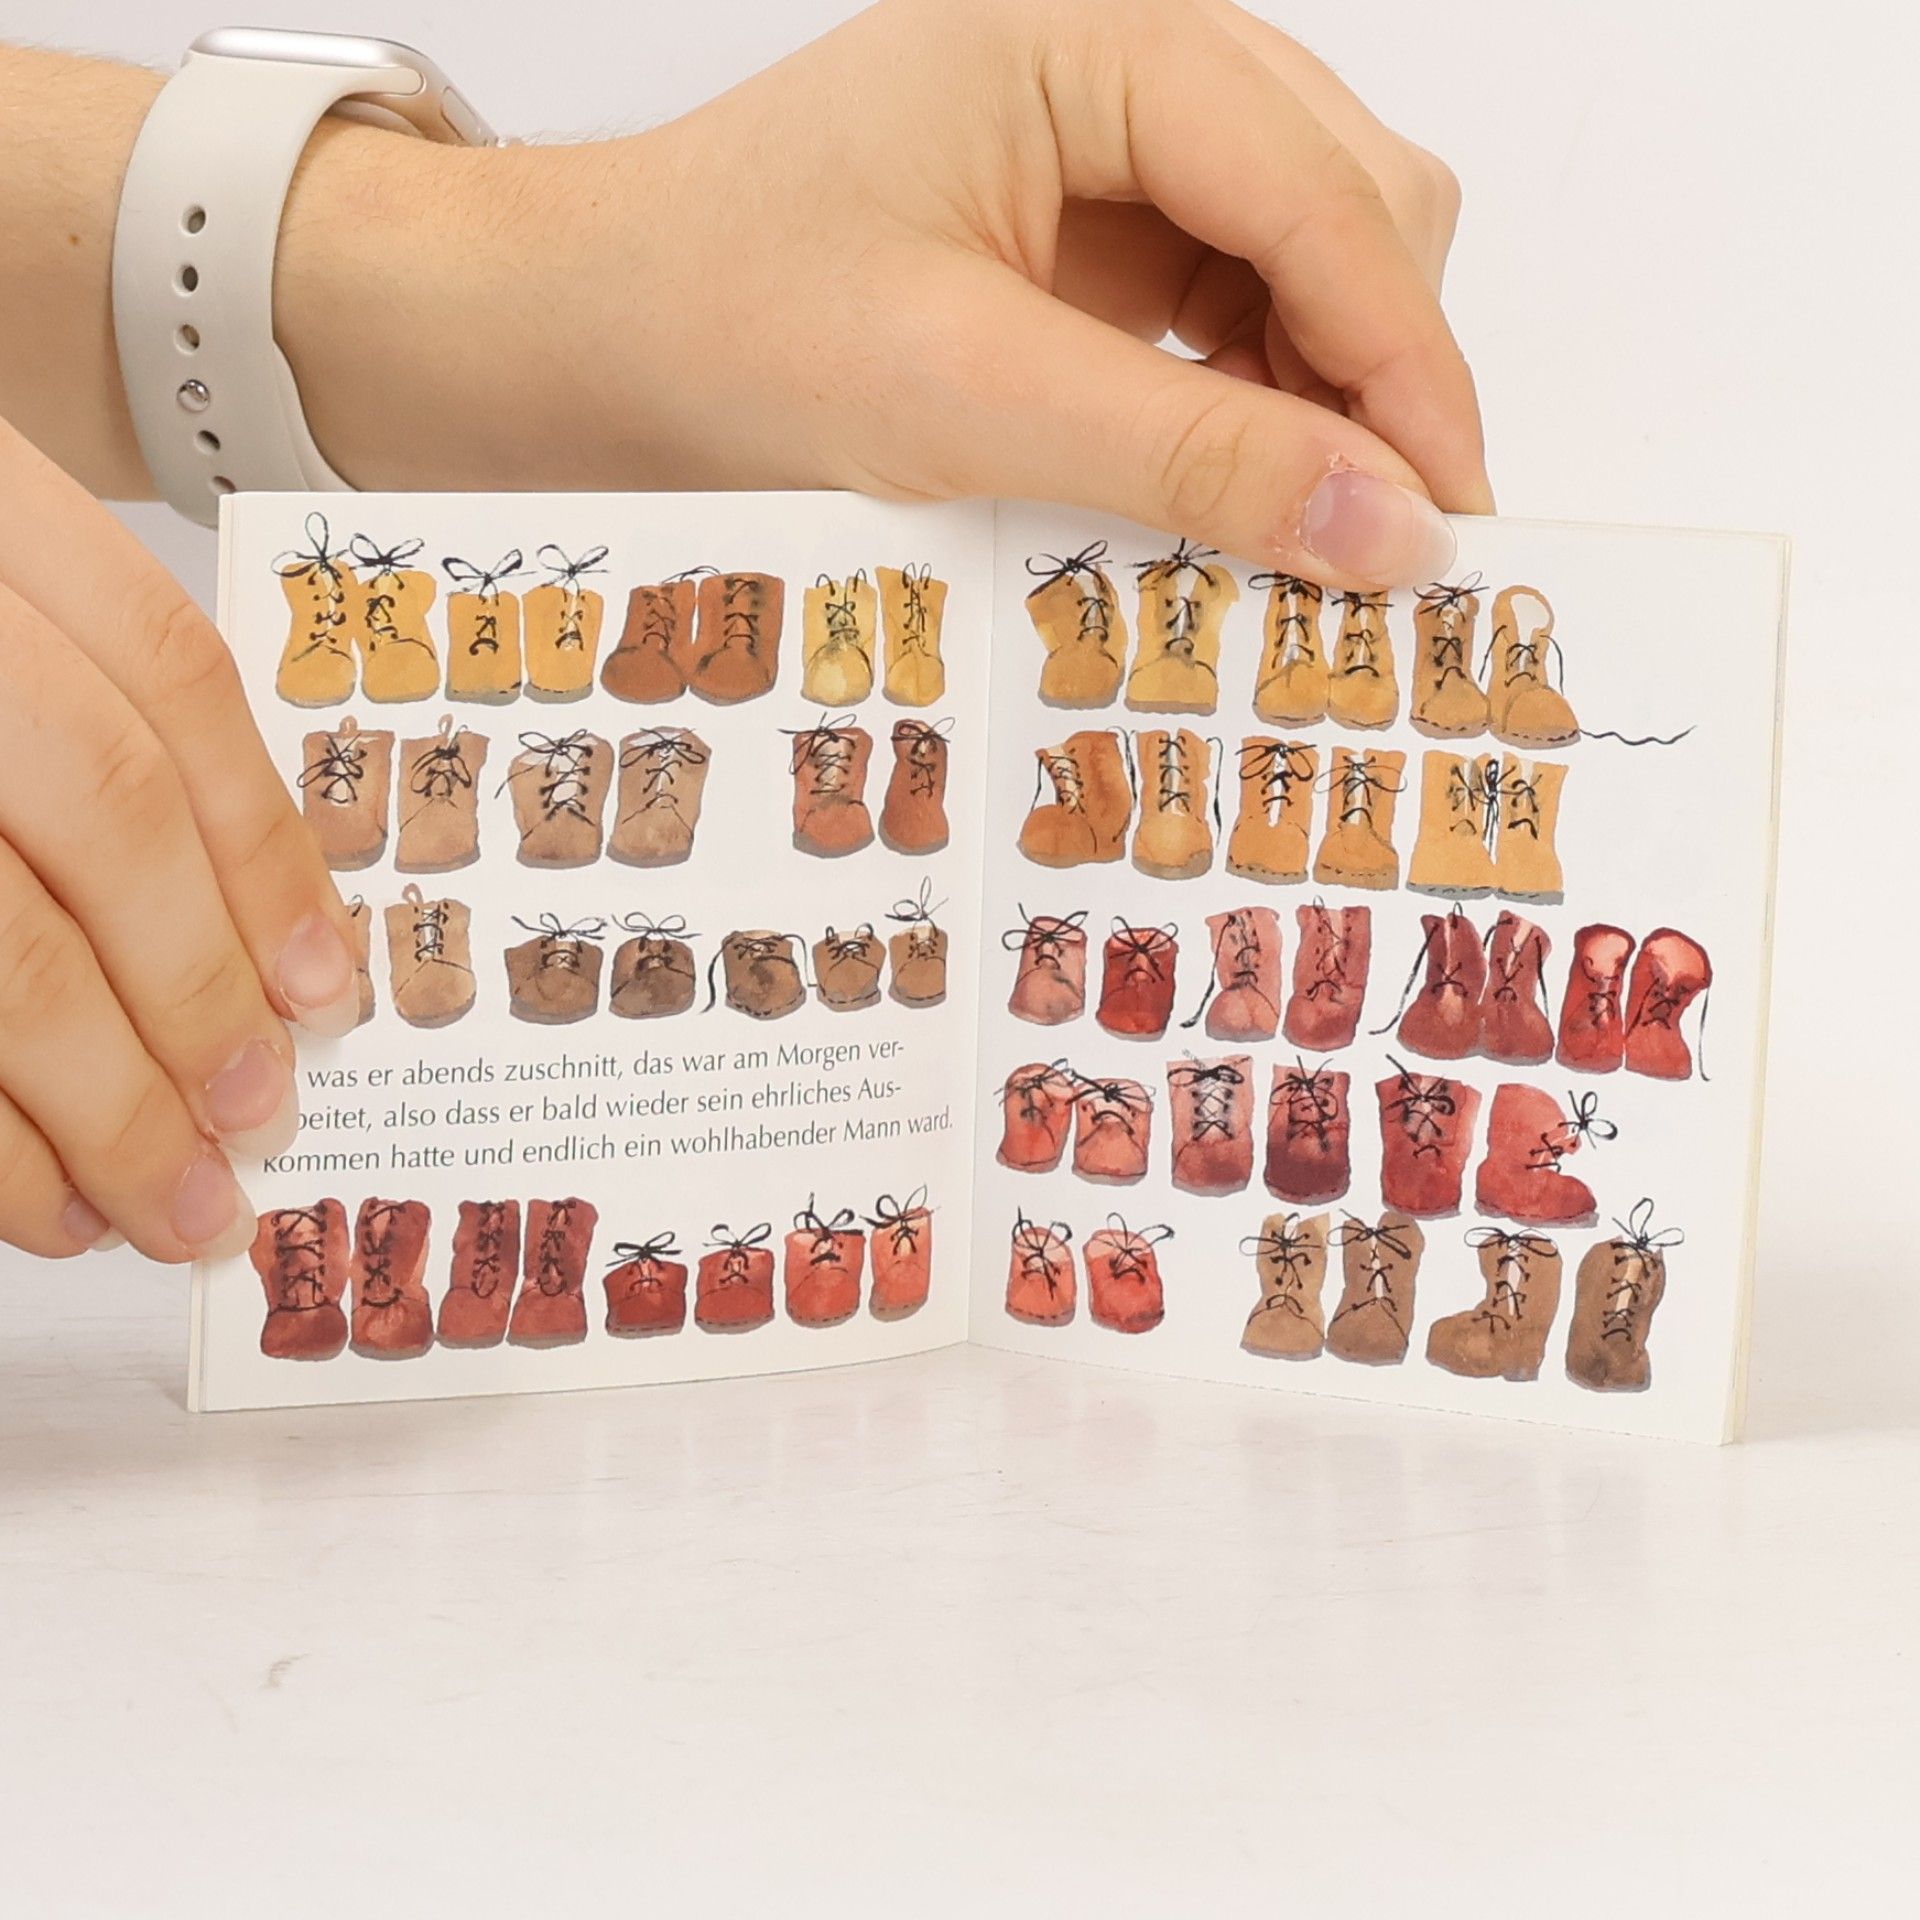 was er abends zuschnitt, das war am Morgen ver-
beitet, also dass er bald wieder sein ehrliches Aus-
kommen hatte und endlich ein wohlhabender Mann ward.